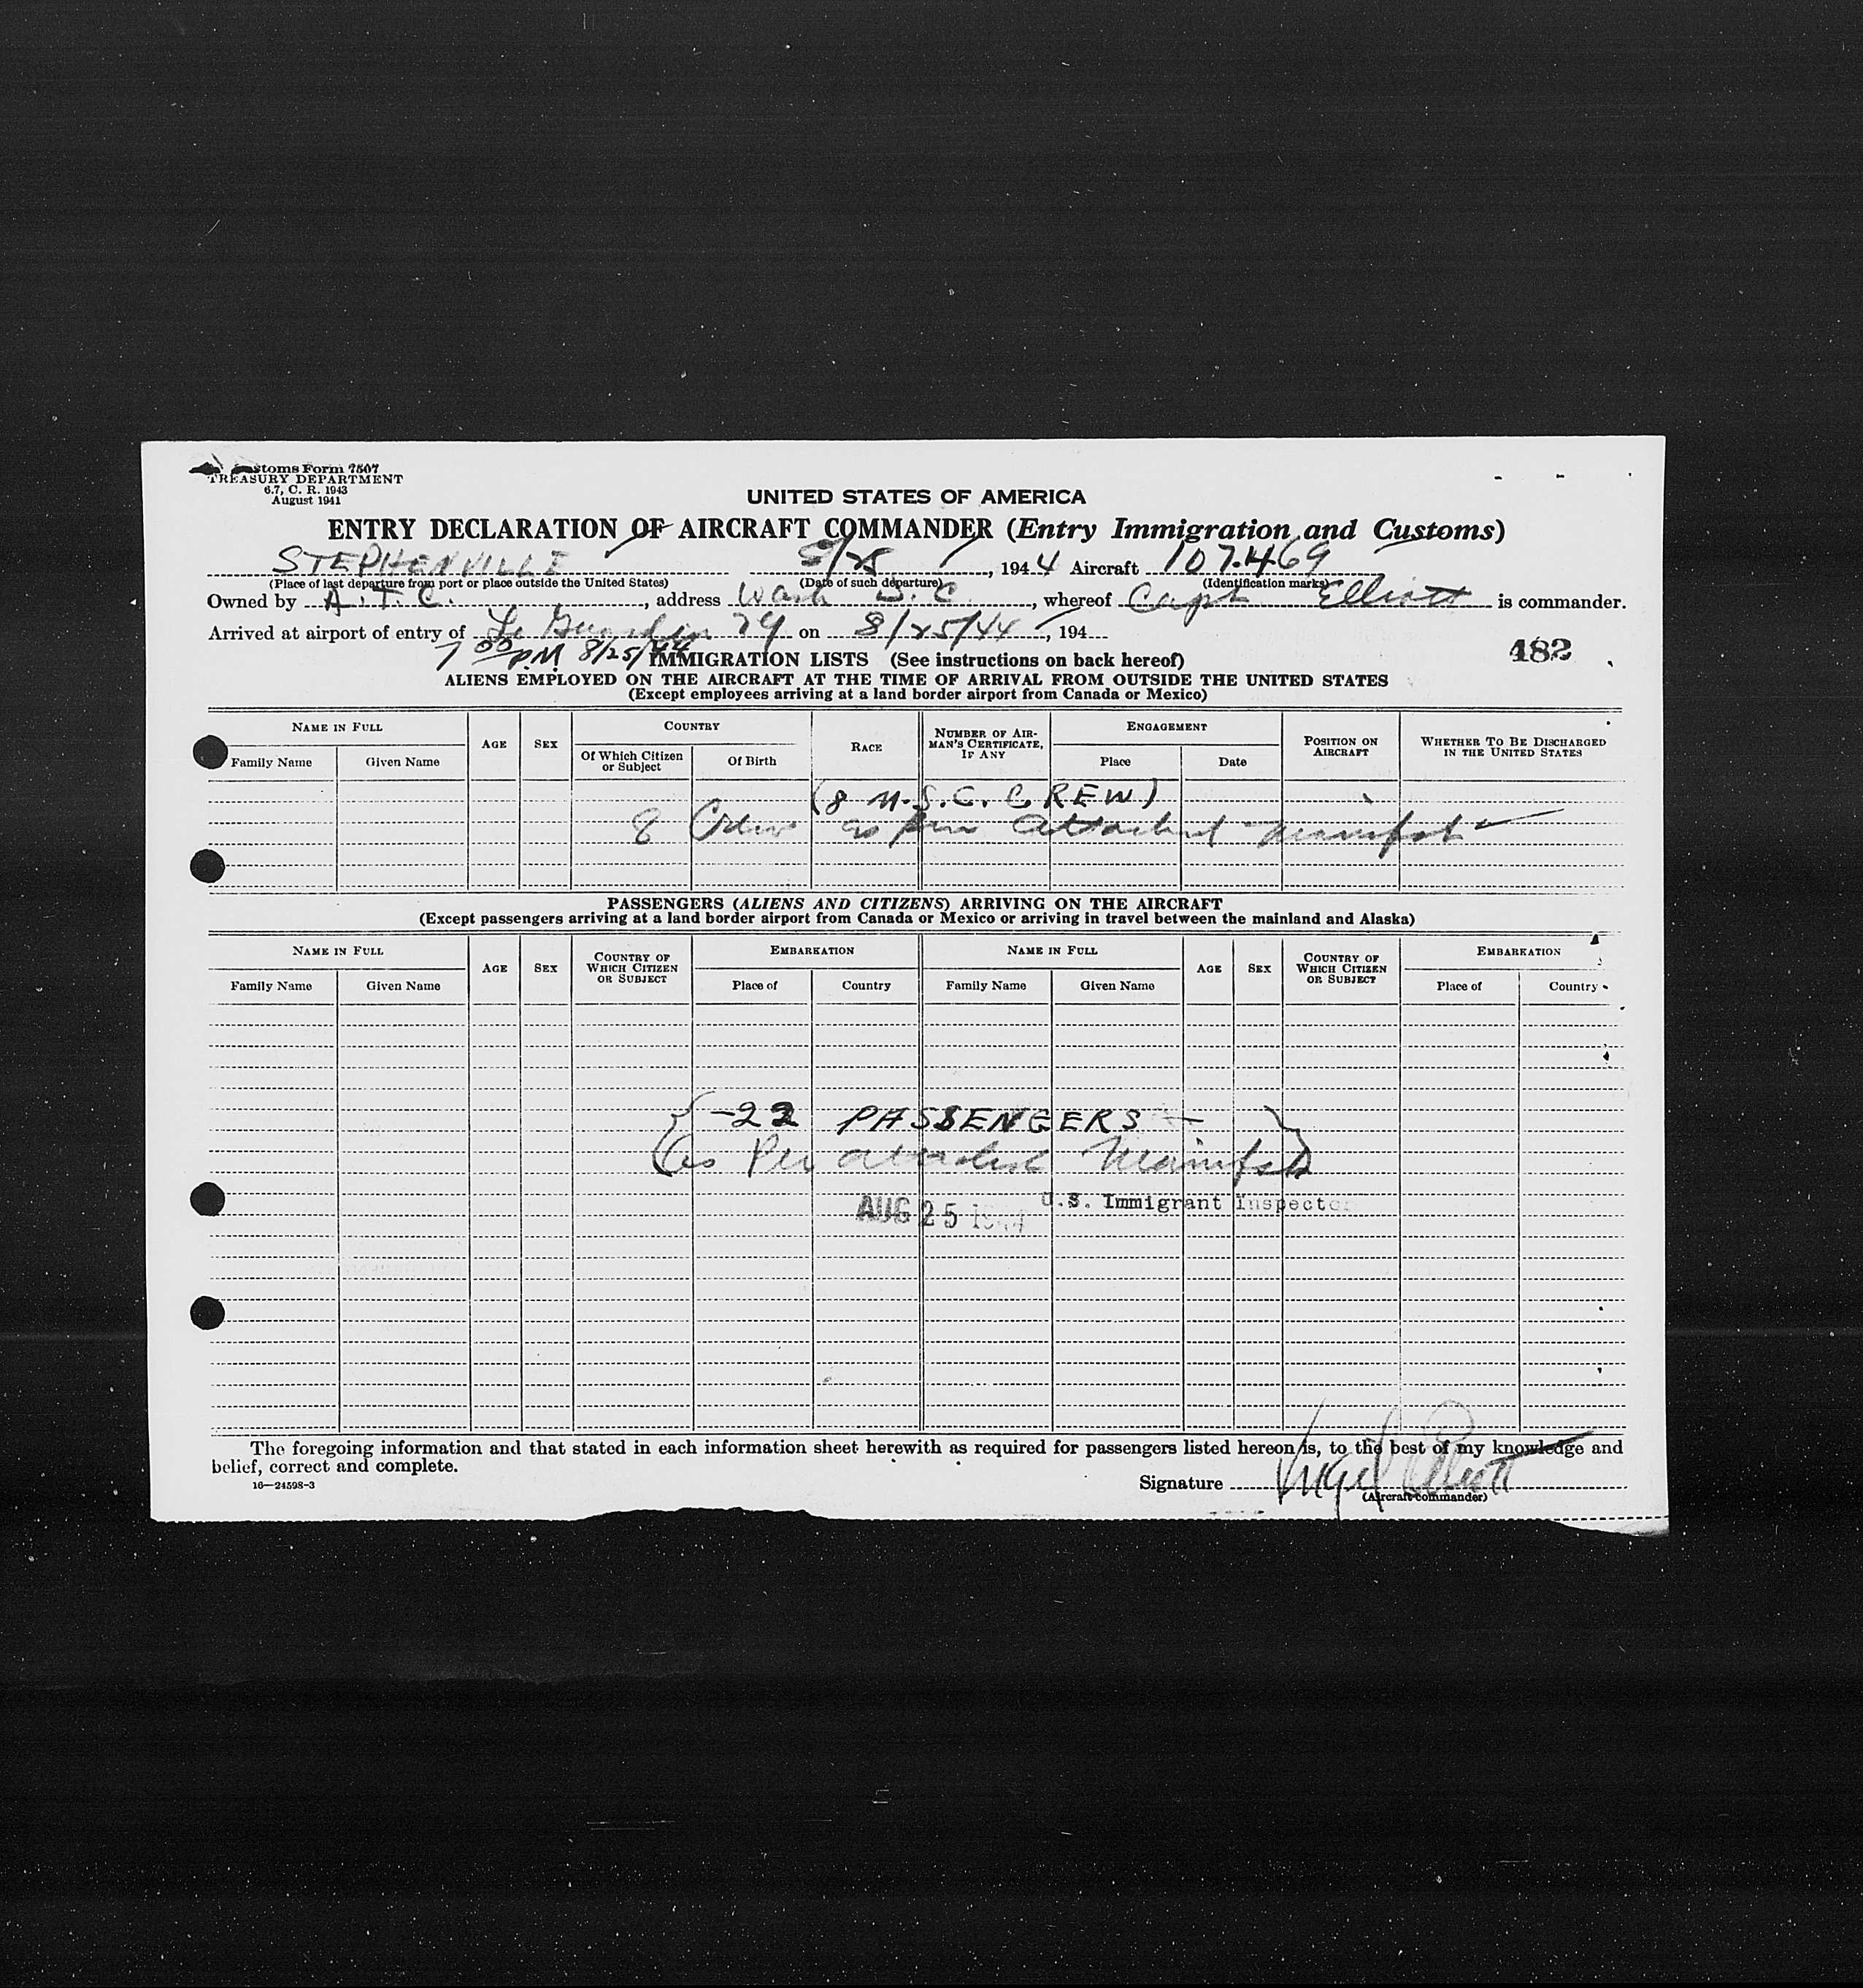 Customs Form 7507
TREASURY DEPARTMENT
6.7, C. R. 1943
August 1941
UNITED STATES OF AMERICA
ENTRY DECLARATION OF AIRCRAFT COMMANDER (Entry Immigration and Customs)
STEPHENVILLE 8/25, 1944 Aircraft 107.469
(Place of last departure from port or place outside the United States) (Date of such departure) (Identification marks)
Owned by A.T.C., address Wash D.C., whereof Capt Elliott is commander.
Arrived at airport of entry of La Guardia on 8/25/44, 194
7 00 P.M. 8/25/44 IMMIGRATION LISTS (See instructions on back hereof) 482
ALIENS EMPLOYED ON THE AIRCRAFT AT THE TIME OF ARRIVAL FROM OUTSIDE THE UNITED STATES
(Except employees arriving at a land border airport from Canada or Mexico)
NAME IN FULL AGE SEX COUNTRY RACE NUMBER OF AIRMAN'S CERTIFICATE, IF ANY ENGAGEMENT POSITION ON AIRCRAFT WHETHER TO BE DISCHARGED IN THE UNITED STATES
Family Name Given Name Of Which Citizen or Subject Of Birth Place Date
(8 U.S.C. CREW)
8 Crew as per attached manifest
PASSENGERS (ALIENS AND CITIZENS) ARRIVING ON THE AIRCRAFT
(Except passengers arriving at a land border airport from Canada or Mexico or arriving in travel between the mainland and Alaska)
NAME IN FULL AGE SEX COUNTRY OF WHICH CITIZEN OR SUBJECT EMBARKATION NAME IN FULL AGE SEX COUNTRY OF WHICH CITIZEN OR SUBJECT EMBARKATION
Family Name Given Name Place of Country Family Name Given Name Place of Country
-22 PASSENGERS-
(as Per attached Manifest)
U.S. Immigrant Inspector
AUG 25 1944
The foregoing information and that stated in each information sheet herewith as required for passengers listed hereon is, to the best of my knowledge and
belief, correct and complete.
16—24598-3
Signature Elliott
(Aircraft commander)